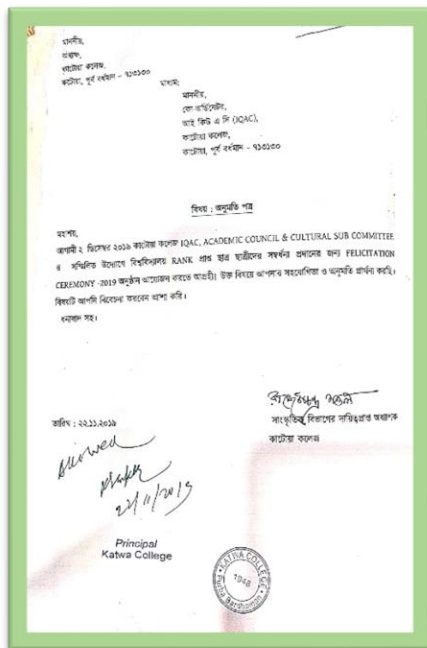 মাননীয়,
অধ্যক্ষ,
কাটোয়া কলেজ,
কাটোয়া, পূর্ব বর্ধমান - ৭১৩১৩০
মাধ্যম:
মাননীয়,
কো-অর্ডিনেটর,
আই কিউ এ সি (IQAC),
কাটোয়া কলেজ,
কাটোয়া, পূর্ব বর্ধমান - ৭১৩১৩০
বিষয় : অনুমতি পত্র
মহাশয়,
আগামী ২ ডিসেম্বর ২০১৯ কাটোয়া কলেজ IQAC, ACADEMIC COUNCIL & CULTURAL SUB COMMITTEE
র সম্মিলিত উদ্যোগে বিশ্ববিদ্যালয় RANK প্রাপ্ত ছাত্র ছাত্রীদের সম্বর্ধনা প্রদানের জন্য FELICITATION
CEREMONY -2019 অনুষ্ঠান আয়োজন করতে আগ্রহী। উক্ত বিষয়ে আপনার সহযোগিতা ও অনুমতি প্রার্থনা করছি।
বিষয়টি আপনি বিবেচনা করবেন আশা করি।
ধন্যবাদ সহ।
তারিখ : ২২.১১.২০১৯
সাংস্কৃতিক বিভাগের দায়িত্বপ্রাপ্ত অধ্যাপক
কাটোয়া কলেজ
Allowed
22/11/2019
Principal
Katwa College
KATWA COLLEGE
1948
Purba Bardhaman